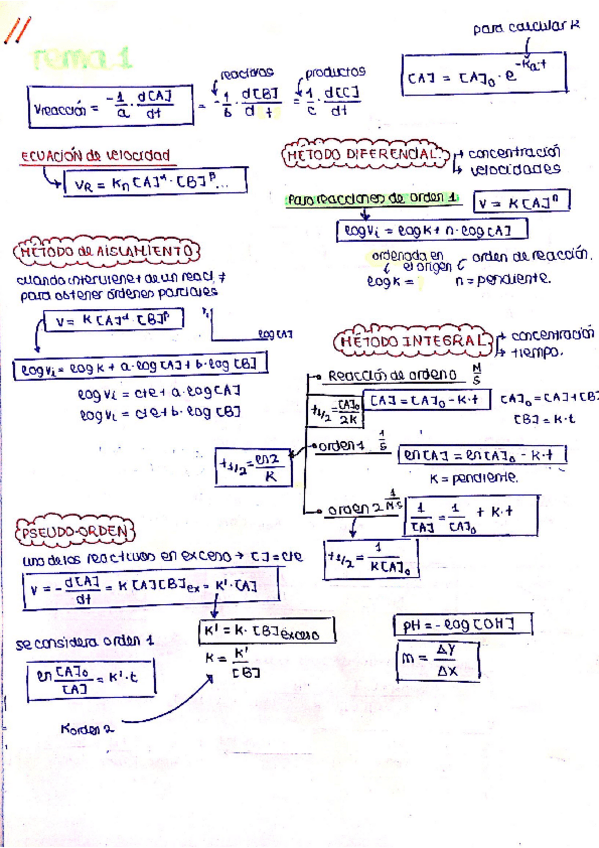 para calcular K
Tema 1
[A] = [A]₀ · e^(-Ka·t)
reactivos
productos
Vreacción = -1/a · d[A]/dt = -1/b · d[B]/dt = 1/c · d[C]/dt
ECUACIÓN de velocidad
V_R = K_n [A]^α · [B]^β...
MÉTODO DIFERENCIAL
→ concentración
→ velocidades
Para reacciones de orden 1
V = K[A]^n
log Vi = log K + n · log[A]
ordenada en el origen
orden de reacción.
log K =
n = pendiente.
MÉTODO de AISLAMIENTO
cuando interviene + de un react, +
para obtener órdenes parciales
V = K[A]^α · [B]^β
log[A]
log Vi = log K + a · log[A] + b · log[B]
log Vi = cte + a · log[A]
log Vi = cte + b · log[B]
MÉTODO INTEGRAL
→ concentración
→ tiempo.
Reacción de orden 0 M/S
t₁/₂ = [A]₀/2K
[A] = [A]₀ - K·t
[A]₀ = [A] + [B]
[B] = K·t
orden 1 1/S
t₁/₂ = ln2/K
ln[A] = ln[A]₀ - K·t
K = pendiente.
orden 2 1/M·S
1/[A] = 1/[A]₀ + K·t
t₁/₂ = 1/K[A]₀
PSEUDO-ORDEN
uno de los reactivos en exceso → [ ] = cte
V = - d[A]/dt = K[A][B]ex = K' · [A]
K' = K · [B]exceso
K = K'/[B]
se considera orden 1
ln [A]₀/[A] = K'·t
K orden 2
pH = -log[OH]
m = ΔY/ΔX